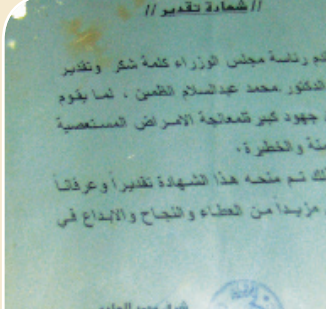 // شهادة تقدير //
رئاسة مجلس الوزراء كلمة شكر وتقدير
الدكتور محمد عبدالسلام الظمين ، لما يقوم
جهود كبير لمعالجة الامراض المستعصية
والخطيرة .
تم منحه هذا الشهادة تقديراً وعرفاناً
مزيداً من العطاء والنجاح والابداع في